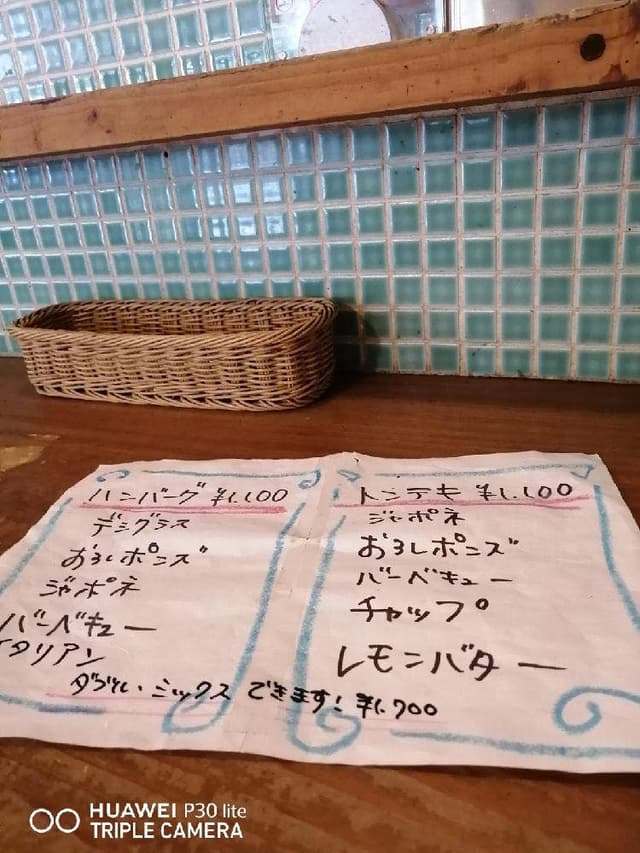 ハンバーグ ¥1,100
デミグラス
おろしポンズ
ジャポネ
バーベキュー
イタリアン
トンテキ ¥1,100
ジャポネ
おろしポンズ
バーベキュー
チャップ
レモンバター
ダブル・ミックス できます! ¥1,700
HUAWEI P30 lite
TRIPLE CAMERA